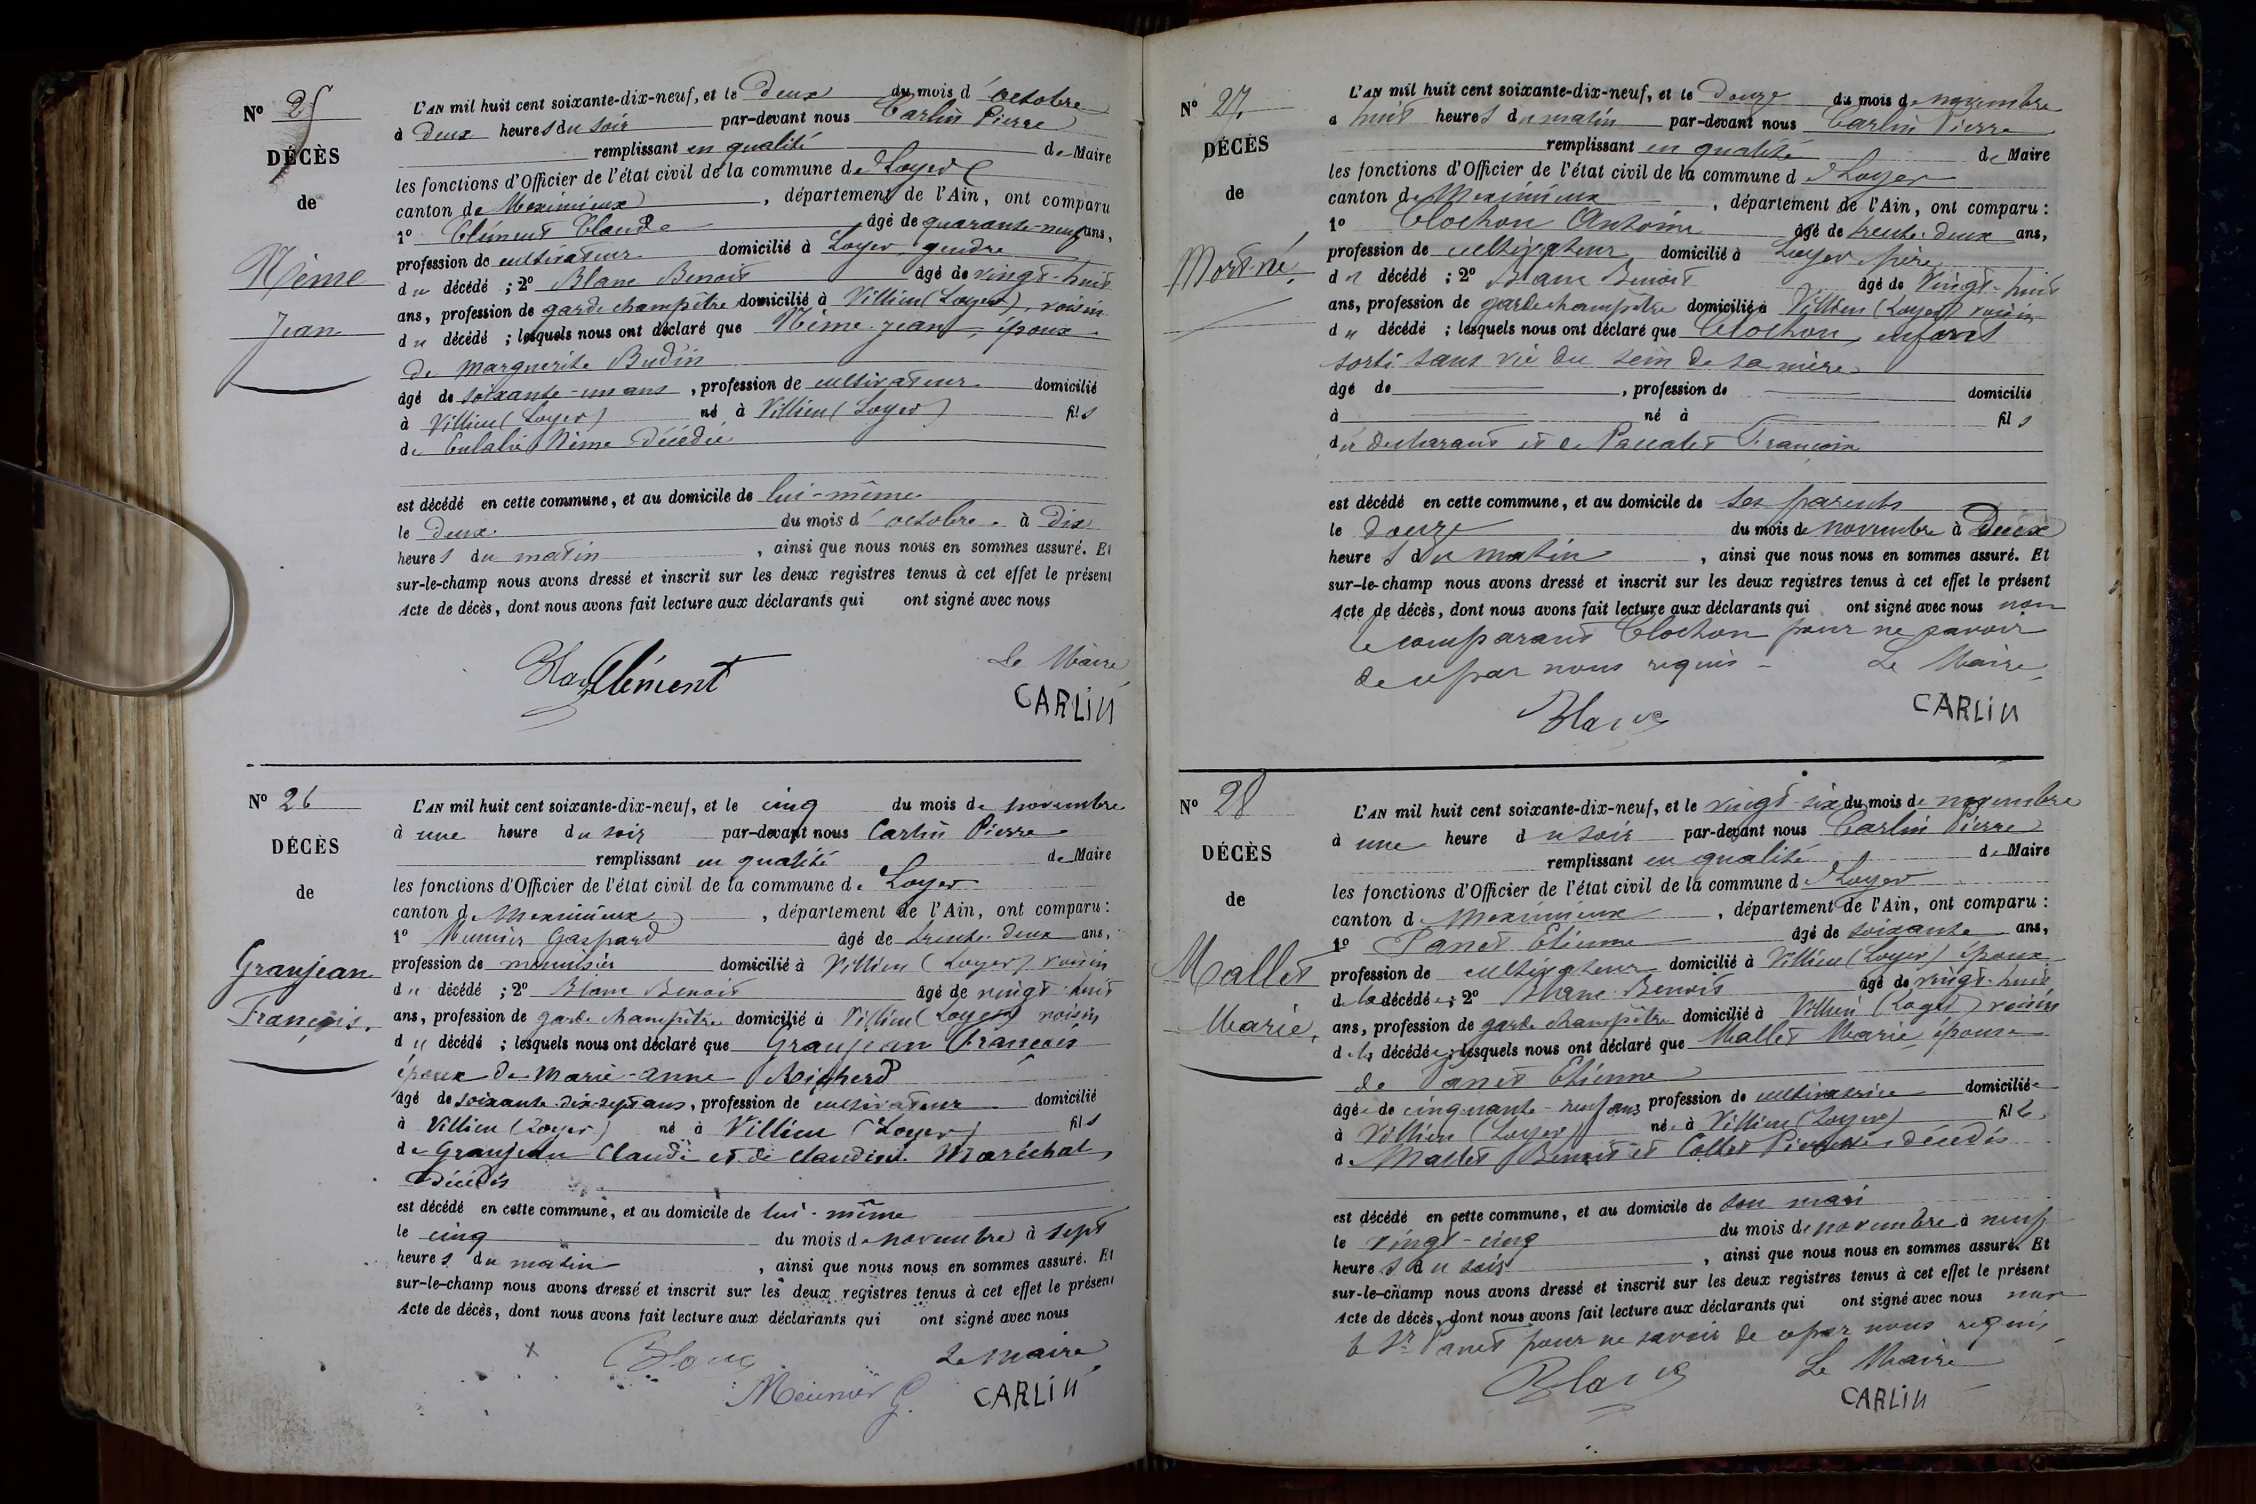 N° 25
DÉCÈS
de
Nème
Jean
L'AN mil huit cent soixante-dix-neuf, et le Deux du mois d'octobre
à Deux heures du soir par-devant nous Carlin Pierre
remplissant en qualité de Maire
les fonctions d'Officier de l'état civil de la commune de Loyer
canton de Meximieux, département de l'Ain, ont comparu
1° Clément Claude âgé de quarante-neuf ans,
profession de cultivateur domicilié à Loyer, gendre
du décédé ; 2° Blanc Benoit âgé de vingt-huit
ans, profession de garde champêtre domicilié à Villieu (Loyer), voisin
du décédé ; lesquels nous ont déclaré que Nème Jean, époux
de Marguerite Budin
âgé de soixante-un ans, profession de cultivateur domicilié
à Villieu (Loyer) né à Villieu (Loyer) fils
de Eulalie Nème Décédée
est décédé en cette commune, et au domicile de lui-même
le Deux du mois d'octobre à Dix
heures du matin, ainsi que nous nous en sommes assuré. Et
sur-le-champ nous avons dressé et inscrit sur les deux registres tenus à cet effet le présent
Acte de décès, dont nous avons fait lecture aux déclarants qui ont signé avec nous
Le Maire
Clément
CARLIN
N° 26
DÉCÈS
de
Granjean
François.
L'AN mil huit cent soixante-dix-neuf, et le cinq du mois de novembre
à une heure du soir par-devant nous Carlin Pierre
remplissant en qualité de Maire
les fonctions d'Officier de l'état civil de la commune de Loyer
canton de Meximieux, département de l'Ain, ont comparu :
1° Meunier Gaspard âgé de trente-deux ans,
profession de menuisier domicilié à Villieu (Loyer) voisin
du décédé ; 2° Blanc Benoit âgé de vingt-huit
ans, profession de garde champêtre domicilié à Villieu (Loyer) voisin
du décédé ; lesquels nous ont déclaré que Granjean François
époux de Marie-Anne
âgé de soixante-dix-sept ans, profession de cultivateur domicilié
à Villieu (Loyer) né à Villieu (Loyer) fils
de Granjean Claude et de Claudine Maréchal,
décédés
est décédé en cette commune, et au domicile de lui-même
le cinq du mois de novembre à sept
heures du matin, ainsi que nous nous en sommes assuré. Et
sur-le-champ nous avons dressé et inscrit sur les deux registres tenus à cet effet le présent
Acte de décès, dont nous avons fait lecture aux déclarants qui ont signé avec nous
Blanc Le Maire
Meunier G. CARLIN
N° 27
DÉCÈS
de
Mort-né
L'AN mil huit cent soixante-dix-neuf, et le Douze du mois de novembre
à huit heures du matin par-devant nous Carlin Pierre
remplissant en qualité de Maire
les fonctions d'Officier de l'état civil de la commune de Loyer
canton de Meximieux, département de l'Ain, ont comparu :
1° Clochon Antoine âgé de trente-deux ans,
profession de cultivateur domicilié à Loyer père
du décédé ; 2° Blanc Benoit âgé de vingt-huit
ans, profession de garde champêtre domicilié à Villieu (Loyer) voisin
du décédé ; lesquels nous ont déclaré que Clochon, enfant
sorti sans vie du sein de sa mère
âgé de , profession de domicilié
à né à fils
du déclarant et de Françoise
est décédé en cette commune, et au domicile de ses parents
le Douze du mois de novembre à Deux
heures du matin, ainsi que nous nous en sommes assuré. Et
sur-le-champ nous avons dressé et inscrit sur les deux registres tenus à cet effet le présent
Acte de décès, dont nous avons fait lecture aux déclarants qui ont signé avec nous non
le comparant Clochon pour ne savoir
de ce par nous requis - Le Maire
Blanc CARLIN
N° 28
DÉCÈS
de
Mallet
Marie,
L'AN mil huit cent soixante-dix-neuf, et le vingt-six du mois de novembre
à une heure du soir par-devant nous Carlin Pierre
remplissant en qualité de Maire
les fonctions d'Officier de l'état civil de la commune de Loyer
canton de Meximieux, département de l'Ain, ont comparu :
1° Panet Etienne âgé de soixante ans,
profession de cultivateur domicilié à Villieu (Loyer) époux
de la décédée ; 2° Blanc Benoit âgé de vingt-huit
ans, profession de garde champêtre domicilié à Villieu (Loyer) voisin
de la décédée ; lesquels nous ont déclaré que Mallet Marie épouse
de Panet Etienne
âgée de cinquante-neuf ans profession de cultivatrice domiciliée
à Villieu (Loyer) née à Villieu (Loyer) fille
de Mallet Benoit et Collet décédés
est décédé en cette commune, et au domicile de son mari
le vingt-cinq du mois de novembre à neuf
heures du soir, ainsi que nous nous en sommes assuré. Et
sur-le-champ nous avons dressé et inscrit sur les deux registres tenus à cet effet le présent
Acte de décès, dont nous avons fait lecture aux déclarants qui ont signé avec nous non
le Sr Panet pour ne savoir de ce par nous requis,
Blanc Le Maire
CARLIN